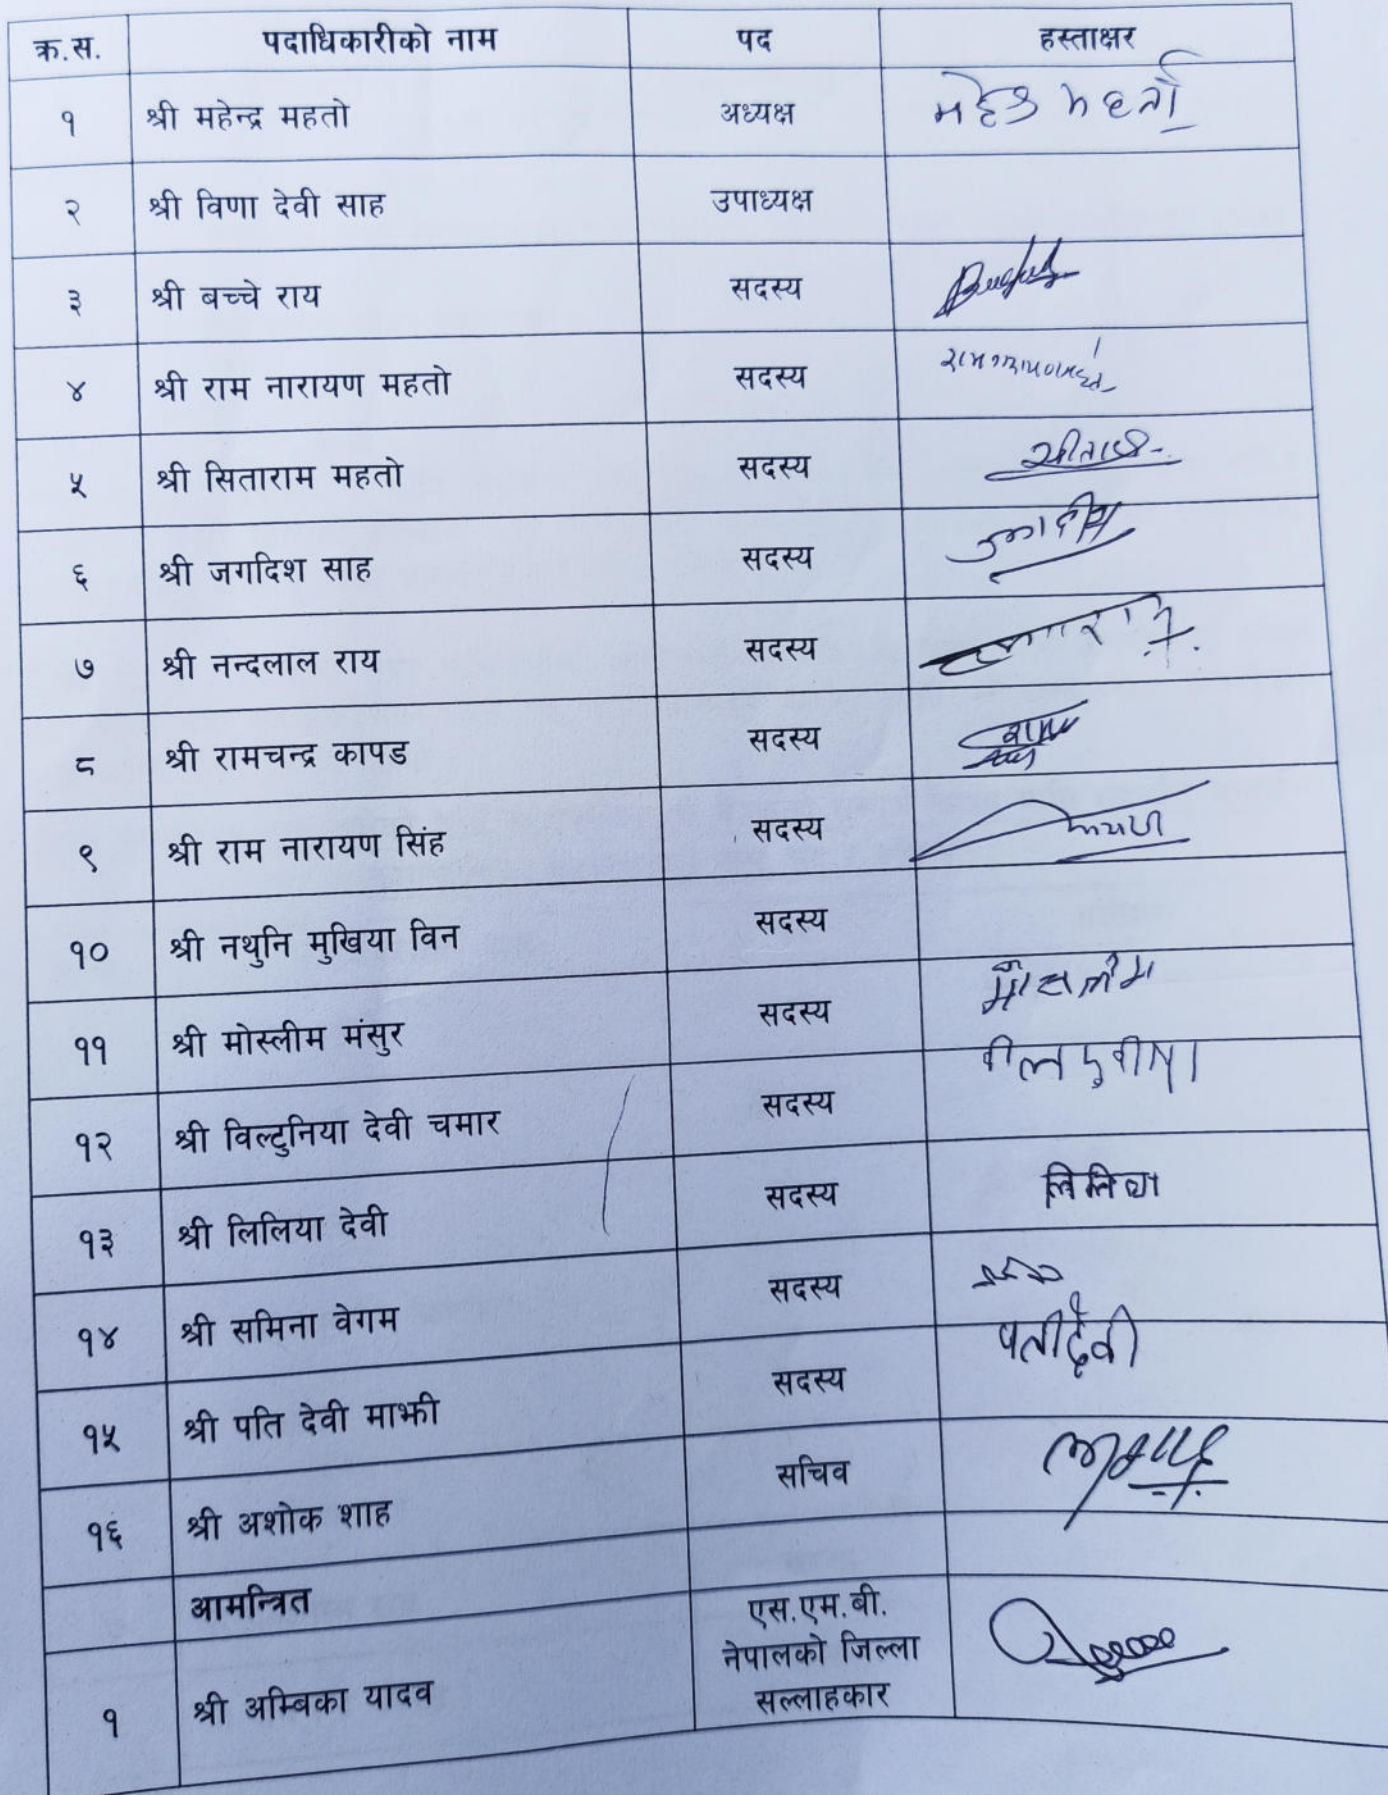 क्र.स. पदाधिकारीको नाम पद हस्ताक्षर
१ श्री महेन्द्र महतो अध्यक्ष
२ श्री विणा देवी साह उपाध्यक्ष
३ श्री बच्चे राय सदस्य
४ श्री राम नारायण महतो सदस्य
५ श्री सिताराम महतो सदस्य
६ श्री जगदिश साह सदस्य
७ श्री नन्दलाल राय सदस्य
८ श्री रामचन्द्र कापड सदस्य
९ श्री राम नारायण सिंह सदस्य
१० श्री नथुनि मुखिया विन सदस्य
११ श्री मोस्लीम मंसुर सदस्य
१२ श्री विल्टुनिया देवी चमार सदस्य
१३ श्री लिलिया देवी सदस्य लिलिया
१४ श्री समिना वेगम सदस्य
१५ श्री पति देवी माझी सदस्य पतीदेवी
१६ श्री अशोक शाह सचिव
आमन्त्रित
१ श्री अम्बिका यादव एस.एम.बी.
नेपालको जिल्ला
सल्लाहकार